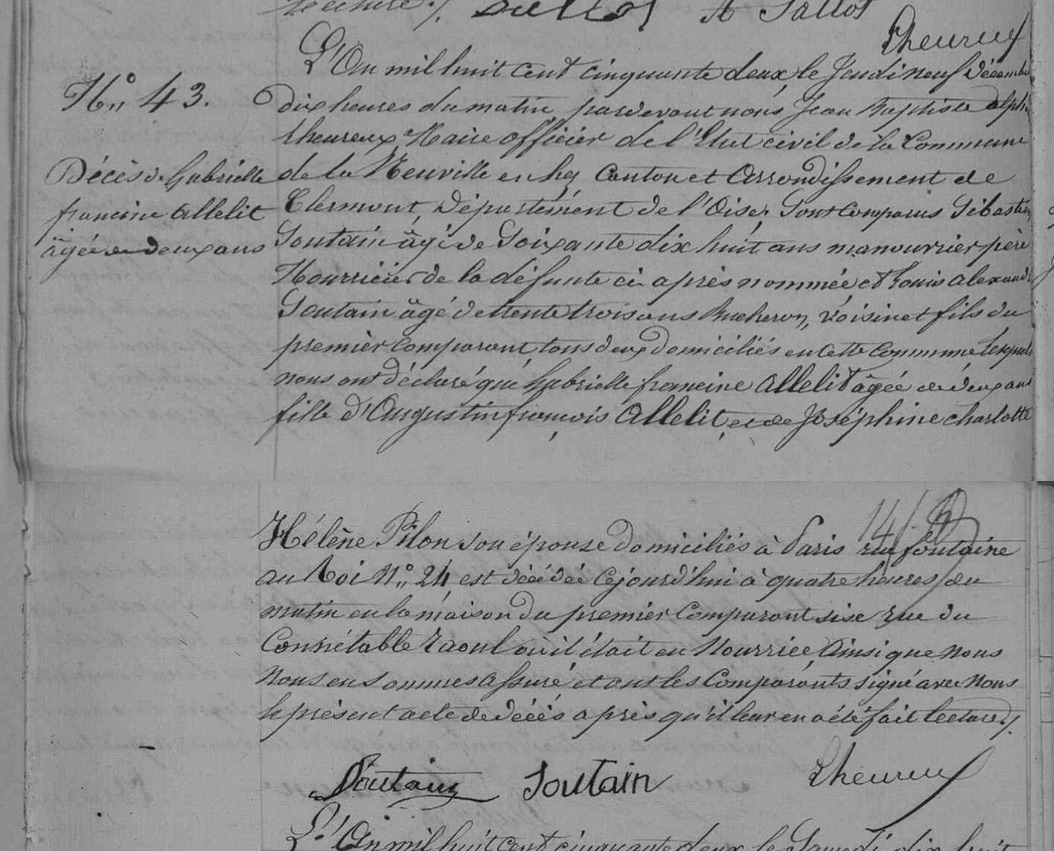 lecture ./.
Lheureux
L'An mil huit cent cinquante deux, le Jeudi neuf Décembre
N.o 43. dix heures du matin, pardevant nous Jean Baptiste alph
Lheureux Maire officier de l'Etat civil de la Commune
Décès de Gabrielle de la Neuville en hez Canton et Arrondissement de
francine Allelit Clermont, Département de l'Oise, Sont Comparus Sébastien
âgée de deux ans Soutain âgé de Soixante dix huit ans manouvrier père
Nourricier de la défunte ci après nommée et Louis Alexandre
Soutain âgé de trente trois ans Bucheron, voisin et fils du
premier Comparant, tous deux domiciliés en cette Commune lesquels
nous ont déclaré que Gabrielle francine Allelit âgée de deux ans
fille d'Augustin françois Allelit, et de Joséphine charlotte
Hélène Pilon son épouse domiciliés à Paris rue fontaine
au Roi N.o 24, est décédée cejourd'hui à quatre heures du
matin en la maison du premier Comparant sise rue du
Connétable Raoul ou il était en Nourrice Ainsi que nous
Nous en sommes assuré et ont les Comparants signé avec Nous
le présent acte de décès après qu'il leur en a été fait lecture ./.
Soutain Soutain Lheureux
L'An mil huit cent cinquante deux le Samedi dix huit